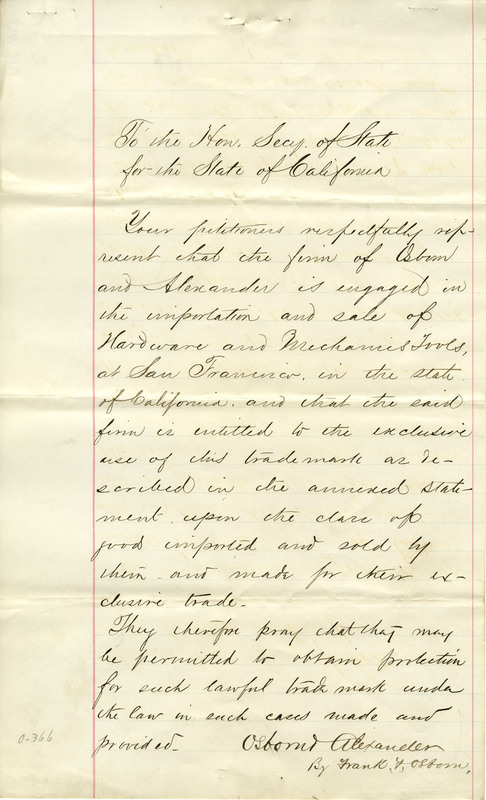 To the Hon. Secy. of State
for the State of California
Your petitioners respectfully rep-
resent that the firm of Osborn
and Alexander is engaged in
the importation and sale of
Hardware and Mechanics Tools,
at San Francisco, in the state
of California. and that the said
firm is entitled to the exclusive
use of this trademark as de-
scribed in the annexed state-
ment. upon the class of
good imported and sold by
them. and made for their ex-
clusive trade.
They therefore pray that they may
be permitted to obtain protection
for such lawful trade mark under
the law in such cases made and
provided. Osborn & Alexander
By Frank F. Osborn,
0-366